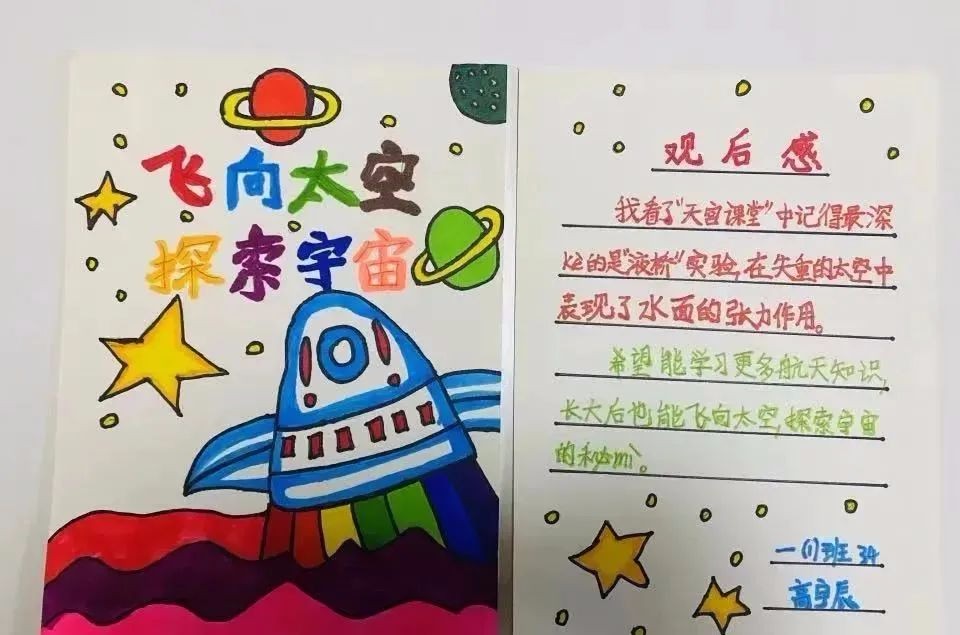 飞向太空
探索宇宙
观后感
我看了"天宫课堂"中记得最深
ke的是"液桥"实验,在失重的太空中
表现了水面的张力作用。
希望能学习更多航天知识,
长大后也能飞向太空,探索宇宙
的秘mì。
一(1)班 34
高宇辰